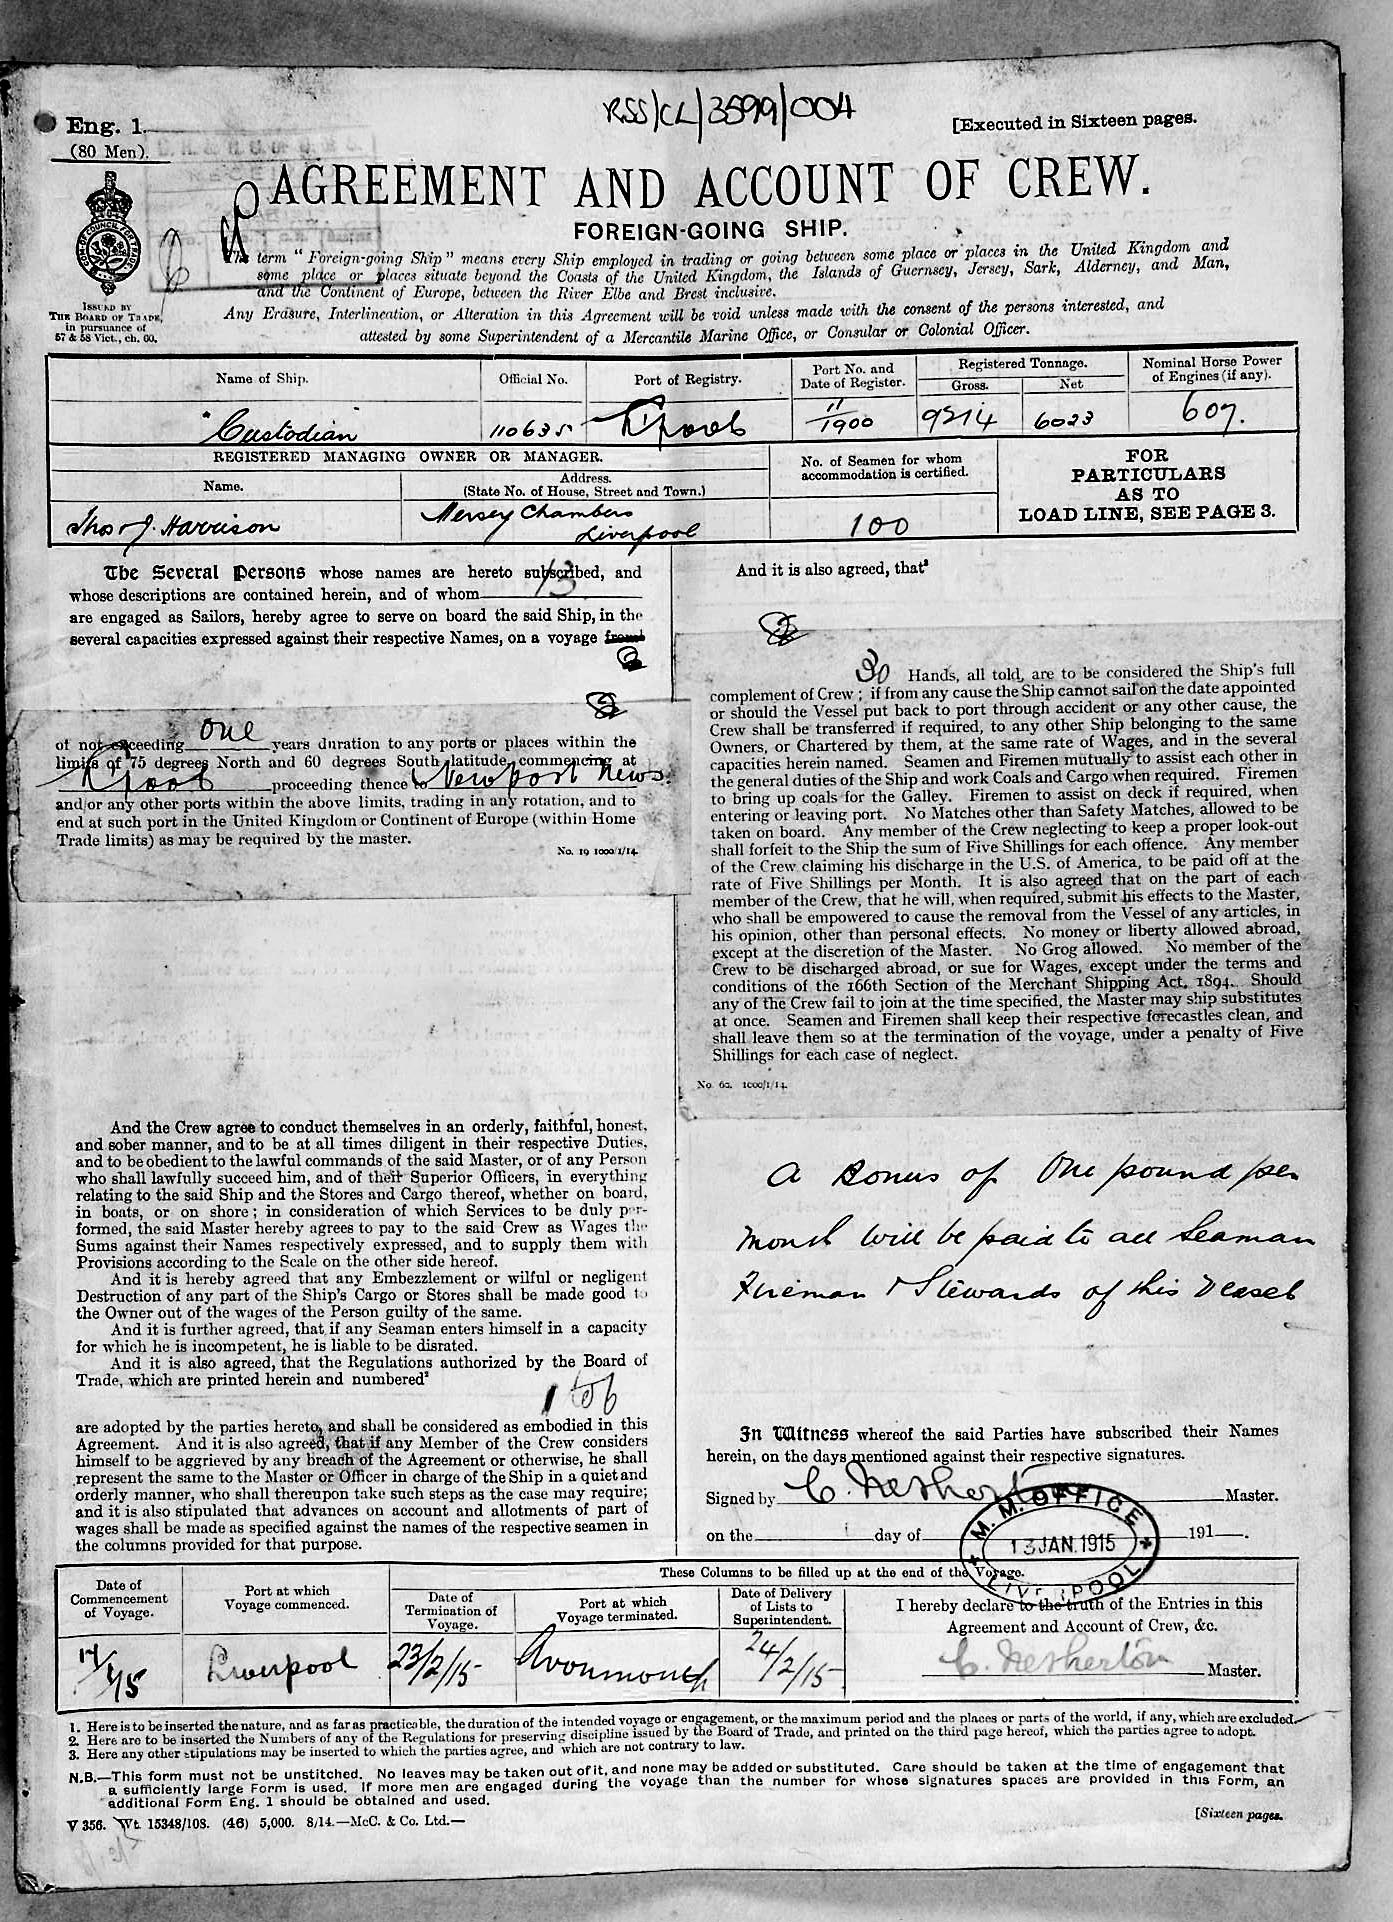 RSS/CL/3599/004
Eng. 1.
(80 Men).
[Executed in Sixteen pages.
AGREEMENT AND ACCOUNT OF CREW.
FOREIGN-GOING SHIP.
The term "Foreign-going Ship" means every Ship employed in trading or going between some place or places in the United Kingdom and
some place or places situate beyond the Coasts of the United Kingdom, the Islands of Guernsey, Jersey, Sark, Alderney, and Man,
and the Continent of Europe, between the River Elbe and Brest inclusive.
Any Erasure, Interlineation, or Alteration in this Agreement will be void unless made with the consent of the persons interested, and
attested by some Superintendent of a Mercantile Marine Office, or Consular or Colonial Officer.
ISSUED BY
THE BOARD OF TRADE,
in pursuance of
57 & 58 Vict., ch. 60.
Name of Ship.
Official No.
Port of Registry.
Port No. and
Date of Register.
Registered Tonnage.
Gross.
Net
Nominal Horse Power
of Engines (if any).
"Custodian
110635
L'pool
11/1900
9214
6023
607.
REGISTERED MANAGING OWNER OR MANAGER.
Name.
Address.
(State No. of House, Street and Town.)
No. of Seamen for whom
accommodation is certified.
FOR
PARTICULARS
AS TO
LOAD LINE, SEE PAGE 3.
Thos & J. Harrison
Mersey Chambers
Liverpool
100
The Several Persons whose names are hereto subscribed, and
whose descriptions are contained herein, and of whom 13
are engaged as Sailors, hereby agree to serve on board the said Ship, in the
several capacities expressed against their respective Names, on a voyage from¹
of not exceeding one years duration to any ports or places within the
limits of 75 degrees North and 60 degrees South latitude, commencing at
L'pool proceeding thence to Newport News
and/or any other ports within the above limits, trading in any rotation, and to
end at such port in the United Kingdom or Continent of Europe (within Home
Trade limits) as may be required by the master.
No. 19 1000/1/14.
And the Crew agree to conduct themselves in an orderly, faithful, honest,
and sober manner, and to be at all times diligent in their respective Duties,
and to be obedient to the lawful commands of the said Master, or of any Person
who shall lawfully succeed him, and of their Superior Officers, in everything
relating to the said Ship and the Stores and Cargo thereof, whether on board,
in boats, or on shore; in consideration of which Services to be duly per-
formed, the said Master hereby agrees to pay to the said Crew as Wages the
Sums against their Names respectively expressed, and to supply them with
Provisions according to the Scale on the other side hereof.
And it is hereby agreed that any Embezzlement or wilful or negligent
Destruction of any part of the Ship's Cargo or Stores shall be made good to
the Owner out of the wages of the Person guilty of the same.
And it is further agreed, that if any Seaman enters himself in a capacity
for which he is incompetent, he is liable to be disrated.
And it is also agreed, that the Regulations authorized by the Board of
Trade, which are printed herein and numbered²
1 to 6
are adopted by the parties hereto, and shall be considered as embodied in this
Agreement. And it is also agreed, that if any Member of the Crew considers
himself to be aggrieved by any breach of the Agreement or otherwise, he shall
represent the same to the Master or Officer in charge of the Ship in a quiet and
orderly manner, who shall thereupon take such steps as the case may require;
and it is also stipulated that advances on account and allotments of part of
wages shall be made as specified against the names of the respective seamen in
the columns provided for that purpose.
And it is also agreed, that³
30 Hands, all told, are to be considered the Ship's full
complement of Crew; if from any cause the Ship cannot sail on the date appointed
or should the Vessel put back to port through accident or any other cause, the
Crew shall be transferred if required, to any other Ship belonging to the same
Owners, or Chartered by them, at the same rate of Wages, and in the several
capacities herein named. Seamen and Firemen mutually to assist each other in
the general duties of the Ship and work Coals and Cargo when required. Firemen
to bring up coals for the Galley. Firemen to assist on deck if required, when
entering or leaving port. No Matches other than Safety Matches, allowed to be
taken on board. Any member of the Crew neglecting to keep a proper look-out
shall forfeit to the Ship the sum of Five Shillings for each offence. Any member
of the Crew claiming his discharge in the U.S. of America, to be paid off at the
rate of Five Shillings per Month. It is also agreed that on the part of each
member of the Crew, that he will, when required, submit his effects to the Master,
who shall be empowered to cause the removal from the Vessel of any articles, in
his opinion, other than personal effects. No money or liberty allowed abroad,
except at the discretion of the Master. No Grog allowed. No member of the
Crew to be discharged abroad, or sue for Wages, except under the terms and
conditions of the 166th Section of the Merchant Shipping Act, 1894. Should
any of the Crew fail to join at the time specified, the Master may ship substitutes
at once. Seamen and Firemen shall keep their respective forecastles clean, and
shall leave them so at the termination of the voyage, under a penalty of Five
Shillings for each case of neglect.
No. 62. 1000/1/14.
A Bonus of One pound per
month will be paid to all Seaman
Fireman & Stewards of this vessel
In Witness whereof the said Parties have subscribed their Names
herein, on the days mentioned against their respective signatures.
Signed by C. Netherton Master.
on the day of 191 .
M. M. OFFICE
13 JAN. 1915
LIVERPOOL
Date of
Commencement
of Voyage.
Port at which
Voyage commenced.
These Columns to be filled up at the end of the Voyage.
Date of
Termination of
Voyage.
Port at which
Voyage terminated.
Date of Delivery
of Lists to
Superintendent.
I hereby declare to the truth of the Entries in this
Agreement and Account of Crew, &c.
14/1/15
Liverpool
23/2/15
Avonmouth
24/2/15
C. Netherton Master.
1. Here is to be inserted the nature, and as far as practicable, the duration of the intended voyage or engagement, or the maximum period and the places or parts of the world, if any, which are excluded.
2. Here are to be inserted the Numbers of any of the Regulations for preserving discipline issued by the Board of Trade, and printed on the third page hereof, which the parties agree to adopt.
3. Here any other stipulations may be inserted to which the parties agree, and which are not contrary to law.
N.B.—This form must not be unstitched. No leaves may be taken out of it, and none may be added or substituted. Care should be taken at the time of engagement that
a sufficiently large Form is used. If more men are engaged during the voyage than the number for whose signatures spaces are provided in this Form, an
additional Form Eng. 1 should be obtained and used.
V 356. Wt. 15348/108. (46) 5,000. 8/14.—McC. & Co. Ltd.—
[Sixteen pages.